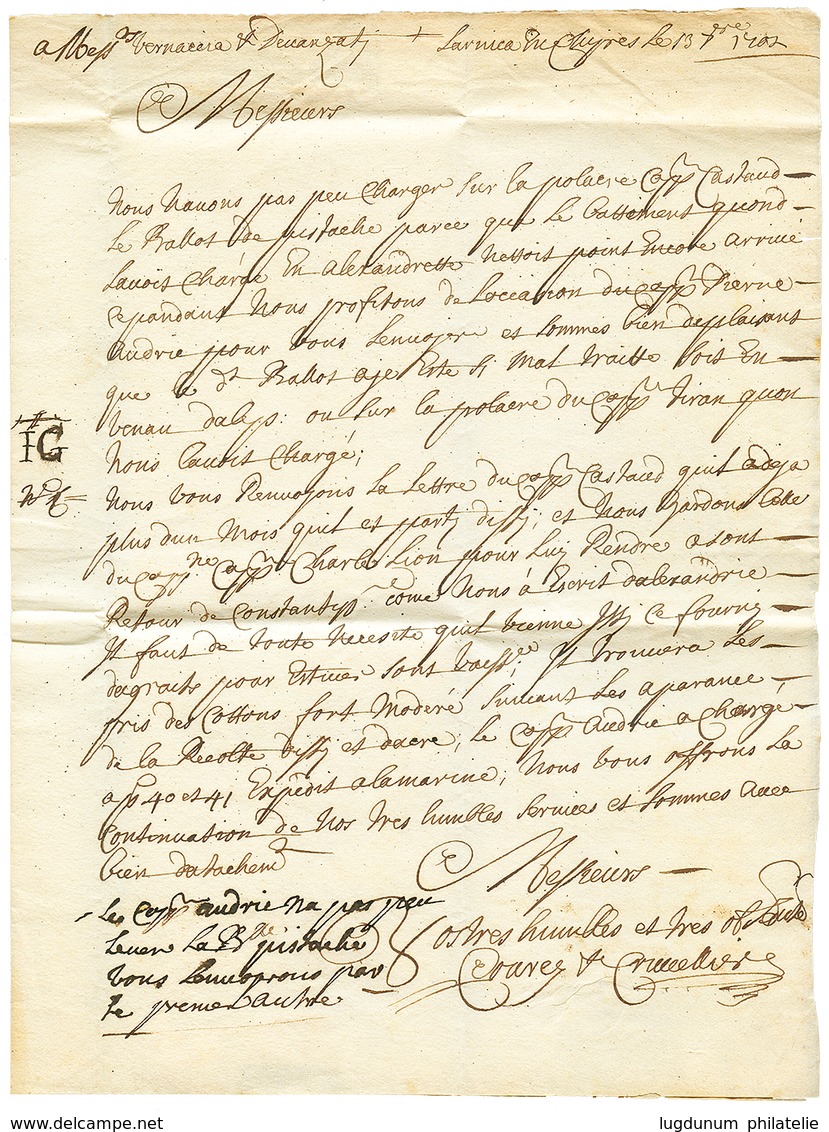 a Mess.rs Vernaccia & Deuanzati + Larnica En Chypres Le 13 7bre 1702
Messieurs
Nous Nauons pas peu Charger Sur la polacre Capp. Castaud
Le Ballot de pistache parce que Le Battiment quond
Lauoit Chargé En alexandrette Nettoit point Encore arriué
Cepandant Nous profitons de Loccation du Capp. Pierre
Audrie pour Vous Lenuoyer et Sommes bien deplaisant
que Ballot aye Esté Si Mal traitte Soit En
Venau dalep ou Sur la polacre du Capp. Tiran quon
IG
Nous Lauoit Chargé;
Nous Vous Renuoyons La Lettre du Capp. Castaud quil a deja
plus dun Mois quil et party dissy; et Nous gardons Celle
du Capp. Charle Lion pour Luy Rendre a Sont
Retour de Constantip. come Nous à Escrit dalexandrie
Jl faut de toute Necesite quil Vienne Jsy Ce fournir
dagraits pour Sont Vaiss.; Jl trouuera Les
pris des Cottons fort Moderé Suiuant Les aparance
de la Recolte dissy et dacre; Le Capp. Audrie a Chargé
a p 40 et 41 Expedit a la marine; Nous Vous offrons La
Continuation de Nos tres humbles Seruices et Sommes auec
bien datachem.t
Messieurs
Le Capp. audrie Na pas peu
Leuer La B. pistache
Vous Lenuoyrons par
le premier autre
Vos tres humbles et tres